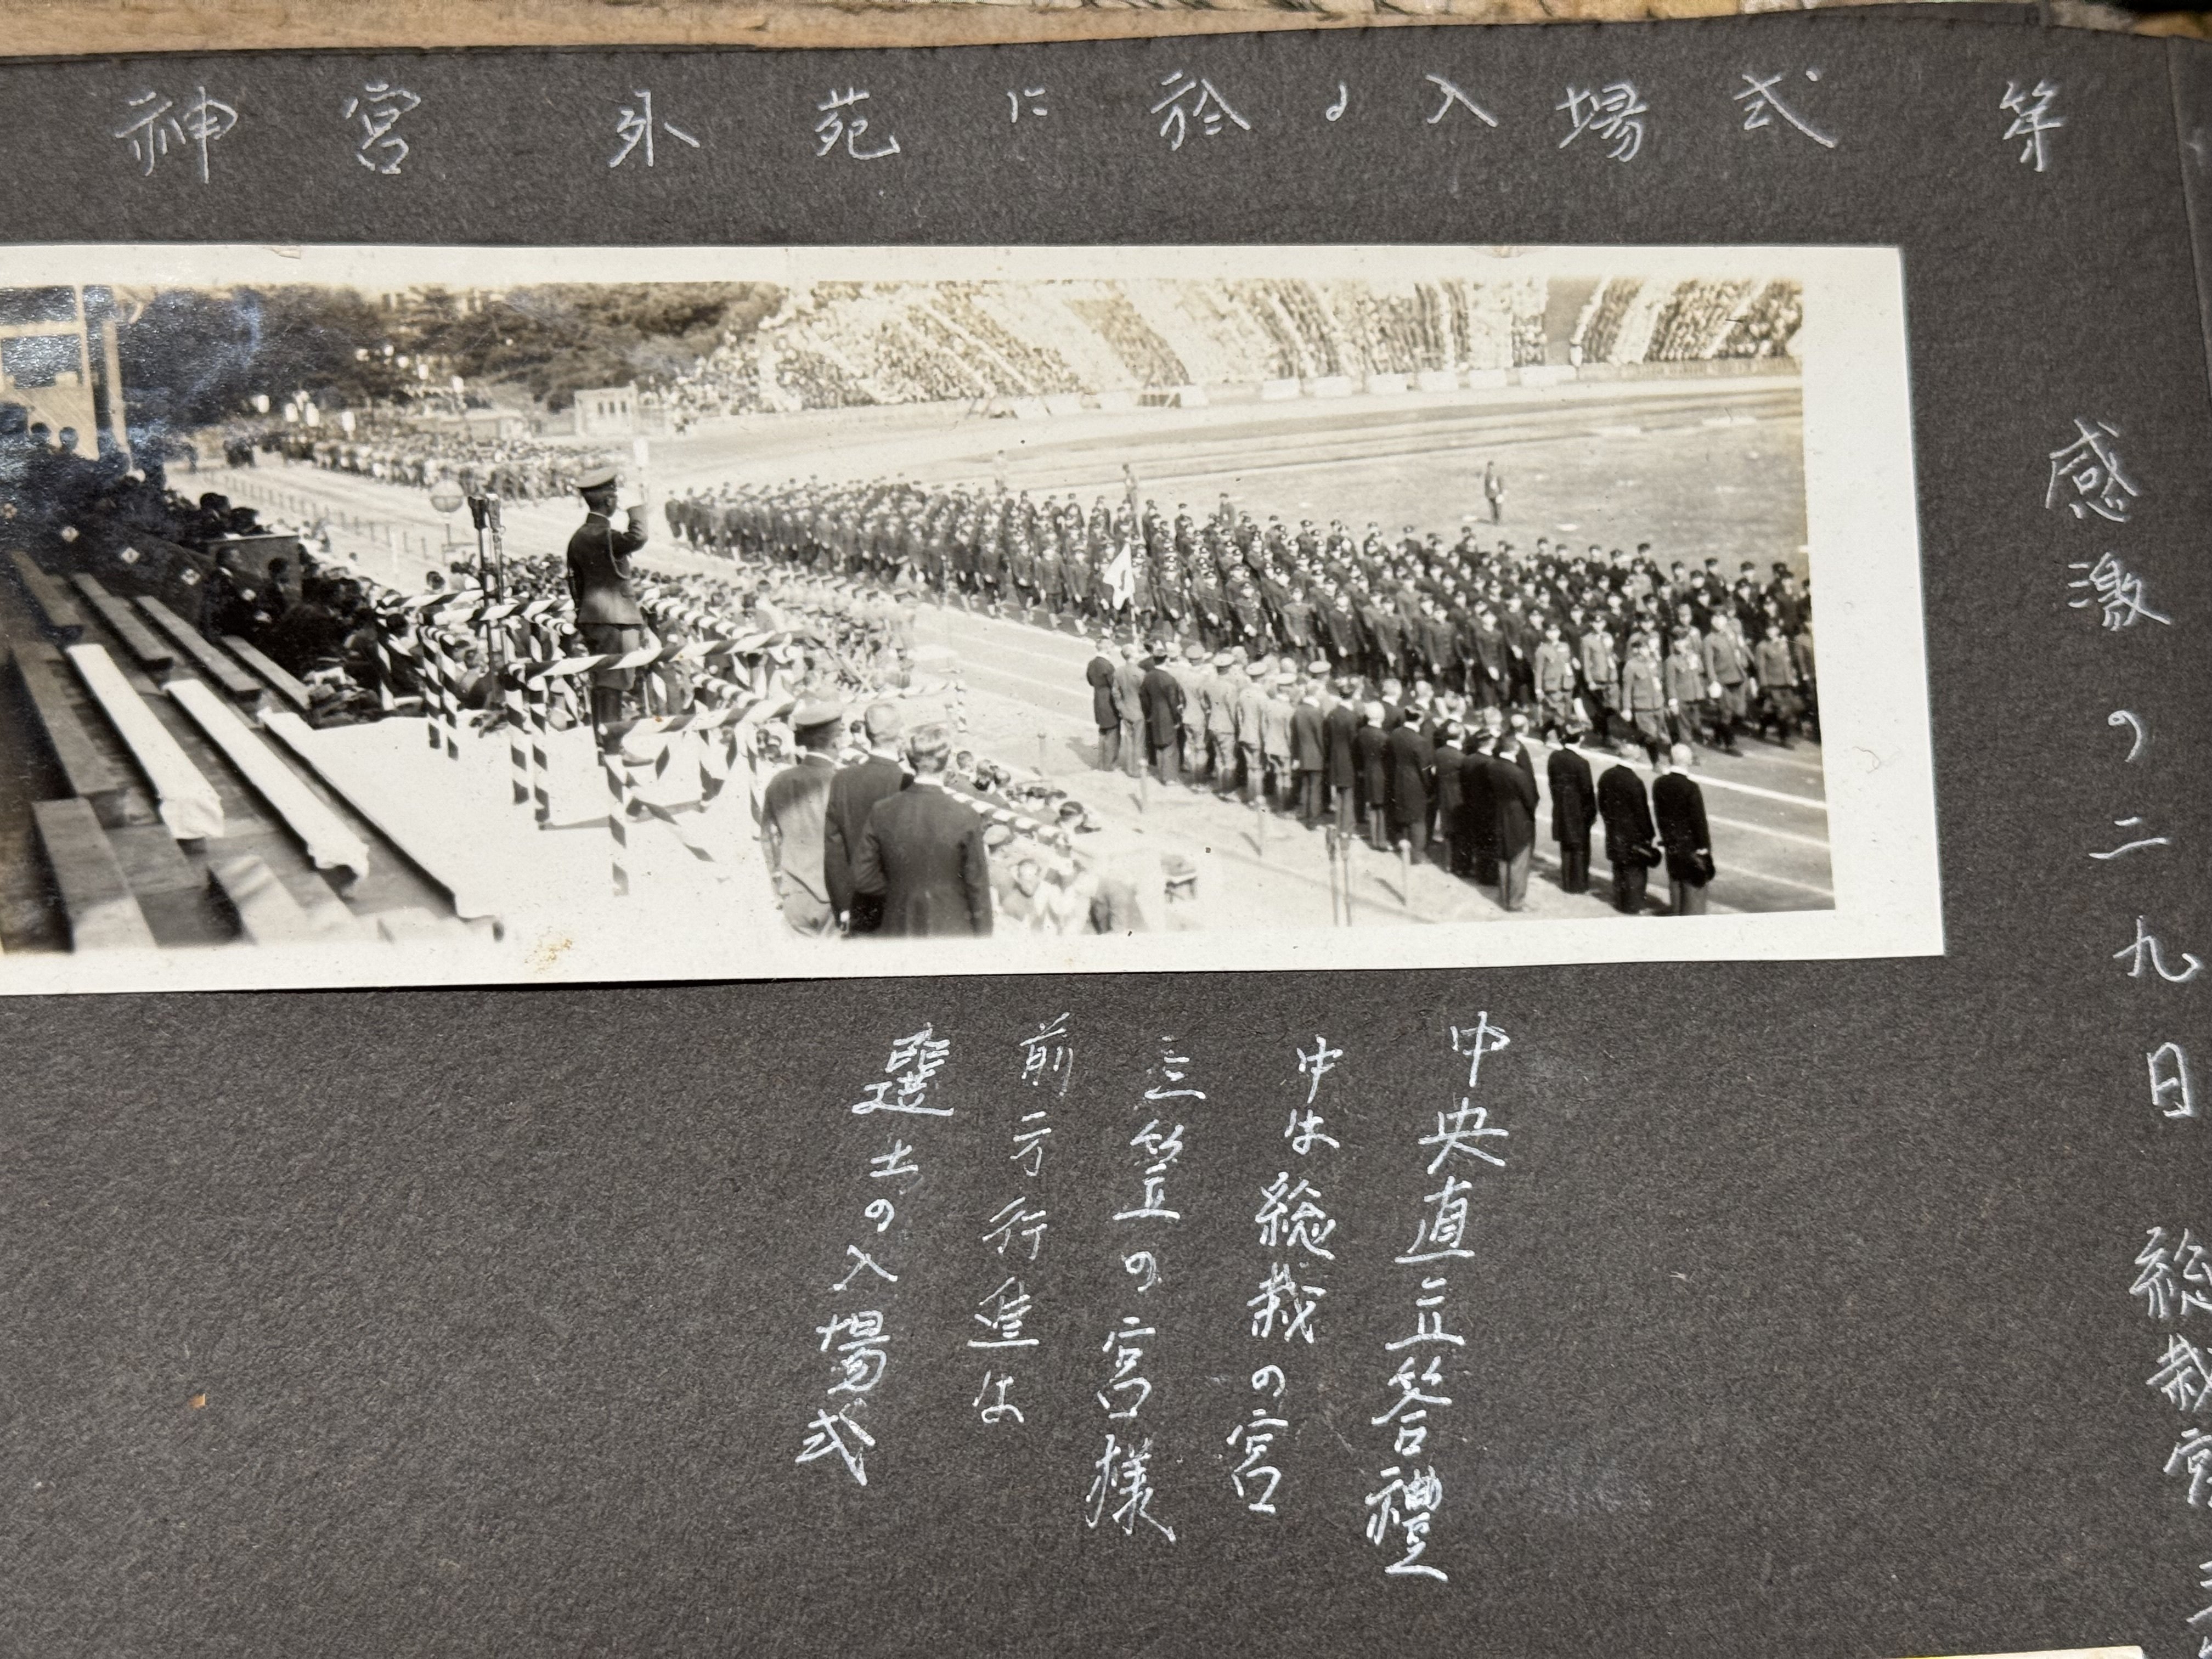 神宮外苑に於る入場式 第
感激の二九日 総裁宮
中央直立答禮
中は総裁の宮
三笠の宮様
前方行進は
選士の入場式